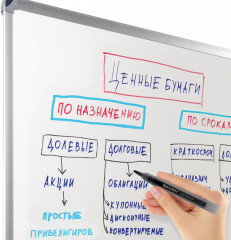 ЦЕННЫЕ БУМАГИ
ПО НАЗНАЧЕНИЮ
ПО СРОКАМ
ДОЛЕВЫЕ
ДОЛГОВЫЕ
КРАТКОСРОЧ
АКЦИИ
ОБЛИГАЦИИ
ПРОСТЫЕ
ПРИВЕЛИГИРОВ
КУПОННЫЕ
ДИСКОНТНЫЕ
КОНВЕРТИРУЕМЫЕ